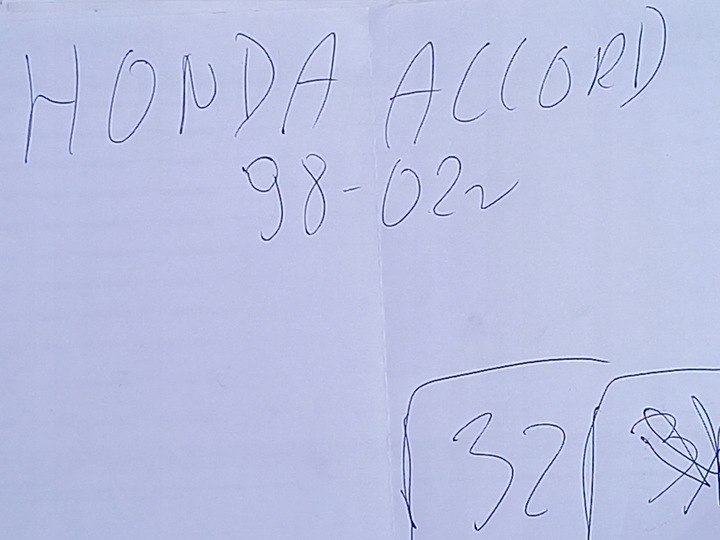 HONDA ACCORD
98-02г
32